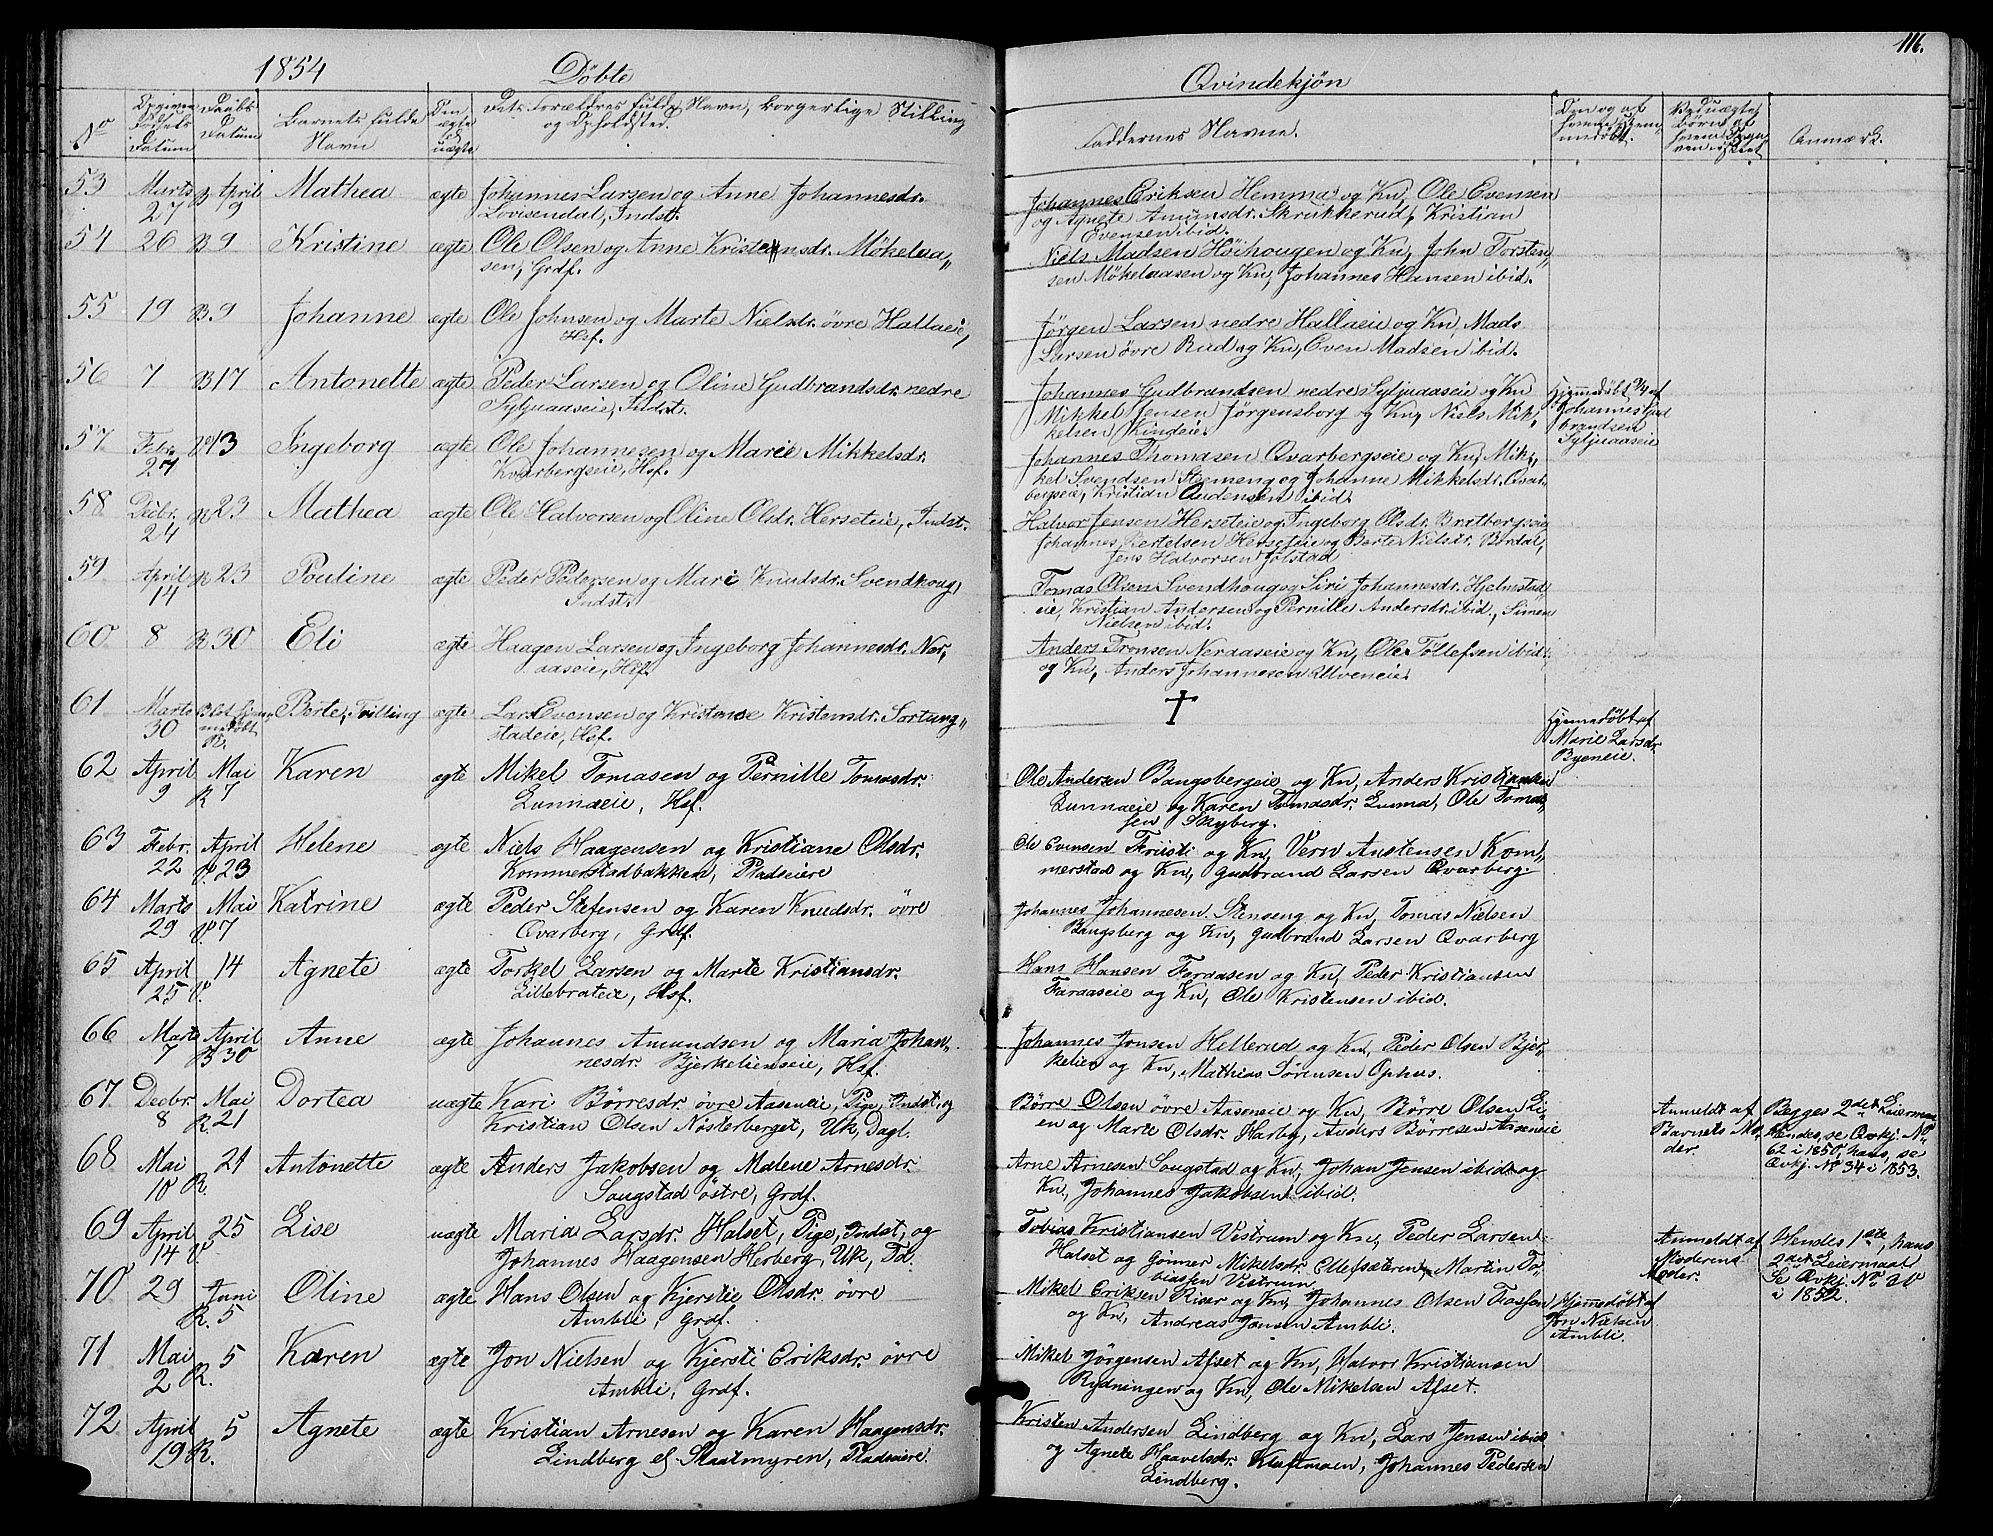 1854
Döbte
Qvindekjön
116.
No
Opgiven Födsels Datum
Daabs Datum
Barnets fulde Navn
Om ægte el. uægte
Dets Forældres fulde Navn, borgerlige Stilling
og Opholdsted.
Faddernes Navne.
Om og af hvem hjemmedöbt.
Ved uægte Börn af hvem Opgaven er sket
Anmærk.
53 Marts 27 B April 9 Mathea ægte Johannes Larsen og Anne Johannesdr.
Lovisendal, Indst.
Johannes Eriksen Hemma og Kn, Ole Evensen
og Agnete Amunsdr. Skrukkerud, Kristian
Evensen ibid.
54 26 B 9 Kristine ægte Ole Olsen og Anne Kristensdr. Mökelaa„
sen, Grdf.
Niels Madsen Höihougen og Kn, John Torsten„
sen Mökelaasen og Kn, Johannes Hansen ibid.
55 19 B. 9 Johanne ægte Ole Johnsen og Marte Nielsdr. övre Hallaeie,
Hsf.
Jörgen Larsen nedre Hallaeie og Kn, Mads
Larsen övre Rud og Kn, Even Madsen ibid.
56 7 B 17 Antonette ægte Peder Larsen og Oline Gudbrandsdr. nedre
Syljuaaseie, Indst.
Johannes Gudbrandsen nedre Syljuaaseie og Kn
Mikkel Jensen Jörgensborg og Kn, Niels Mik„
kelsen Kindeie.
Hjemmedöbt af
Johannes Gud
brandsen
Syljuaaseie
57 Febr. 27 13 Ingeborg ægte Ole Johannesen og Marie Mikkelsdr.
Kvarbergseie, Hsf.
Johannes Thomasen Qvarbergseie og Kn, Mik„
kel Svendsen Stenseng og Johanne Mikkelsdr. Qvar.
bergseie, Kristian Andersen ibid.
58 Decbr. 24 R 23 Mathea ægte Ole Halvorsen og Oline Olsdr. Herseteie, Indst.
Halvor Jensen Herseteie og Ingeborg Olsdr. Bratbergseie
Johannes Bertelsen Herseteie og Berte Nielsdr. Bördal,
Jens Halvorsen Jölstad
59 April 14 R 23 Pouline ægte Peder Pedersen og Mari Knudsdr. Svendhoug,
Indst.
Tomas Olsen Svendhoug og Siri Johannesdr. Hjelmstad
eie, Kristian Andersen og Pernille Andersdr. ibid., Simen
Nielsen ibid.
60 8 R 30 Eli ægte Haagen Larsen og Ingeborg Johannesdr. Ner„
aaseie, Hsf.
Anders Tronsen Neraaseie og Kn, Ole Tollefsen ibid.
og Kn, Anders Johannesen Ulveneie.
61 Marts 30 Blot hjemmedöbt R. Berte, Tvilling ægte Lars Evensen og Kristense Kristensdr. Sortung„
stadeie, Hsf.
†
Hjemmedöbt af
Marie Larsdr.
Byeneie.
62 April 9 Mai R 7 Karen ægte Mikel Tomasen og Pernille Tomasdr.
Lunnaeie, Hsf.
Ole Andersen Bangsbergeie og Kn, Anders Kristiansen
Lunnaeie og Karen Tomasdr. Lunna, Ole Tomas„
sen Skyberg.
63 Febr. 22 April V. 23 Helene ægte Niels Haagensen og Kristiane Olsdr.
Kommerstadbakken, Pladseiere
Ole Evensen Friisti og Kn, Vern Austensen Kom„
merstad og Kn, Gudbrand Larsen Qvarberg.
64 Marts 29 Mai V. 7 Katrine ægte Peder Stefensen og Karen Knudsdr. övre
Qvarberg, Grdf.
Johannes Johannesen Stenseng og Kn, Tomas Nielsen
Bangsberg og Kn, Gudbrand Larsen Qvarberg
65 April 25 14 V. Agnete ægte Torkel Larsen og Marte Kristiansdr.
Lillebrateie, Hsf.
Hans Hansen Foraasen og Kn, Peder Kristiansen
Foraaseie og Kn, Ole Kristensen ibid.
66 Marts 7 April B 30 Anne ægte Johannes Amundsen og Maria Johan„
nesdr. Bjerkelienseie, Hsf.
Johannes Jonsen Hellerud og Kn, Peder Olsen Bjer„
kelien og Kn, Mathias Sörensen Ophus.
67 Decbr. 8 Mai R. 21 Dortea uægte Kari Börresdr. övre Aaseneie, Pige, Indst. og
Kristian Olsen Nösterberget, Uk, Dagl.
Börre Olsen övre Aaseneie og Kn, Börre Olsen Li„
en og Marte Olsdr. Harby, Anders Börresen Aaseneie
Anmeldt af
Barnets Mo„
der.
Begges 2det Leiermaal
Hendes, se Qvkj. No
62 i 1850, hans, se
Qvkj. No 34 i 1853.
68 Mai 10 R. 21 Antonette ægte Anders Jakobsen og Malene Arnesdr.
Sougstad östre, Grdf.
Arne Arnesen Sougstad og Kn, Johan Jensen ibid. og
Kn, Johannes Jakobsen ibid.
69 April 14 V. 25 Lise uægte Maria Larsdr. Halset, Pige, Indst, og
Johannes Haagensen Herberg, Uk, Dd.
Tobias Kristiansen Vestrum og Kn, Peder Larsen
Halset og Gönner Mikelsdr. Ollefsæteren, Martin To„
biassen Vestrum
Anmeldt af
Moderens
Moder.
Hendes 1ste, hans
2det Leiermaal
Se Qvkj. No
i 1852.
70 29 Juni R. 5 Oline ægte Hans Olsen og Kjerstie Olsdr. övre
Ambli, Grdf.
Mikel Eriksen Riser og Kn, Johannes Olsen Fossen
og Kn, Andreas Jonsen Ambli.
Hjemmedöbt af
Jon Nielsen
Ambli.
71 Mai 2 R. 5 Karen ægte Jon Nielsen og Kjersti Eriksdr. övre
Ambli, Grdf.
Mikel Jörgensen Afset og Kn, Halvor Kristiansen
Rydningen og Kn, Ole Mikelsen Afset.
72 April 19 R. 5 Agnete ægte Kristian Arnesen og Karen Haagensdr.
Lindberg el. Slaatmyren, Pladseiere.
Kristen Andersen Lindberg og Kn, Lars Jensen ibid.
og Agnete Haavelsdr. Kluftmoen, Johannes Pedersen
Lindberg.